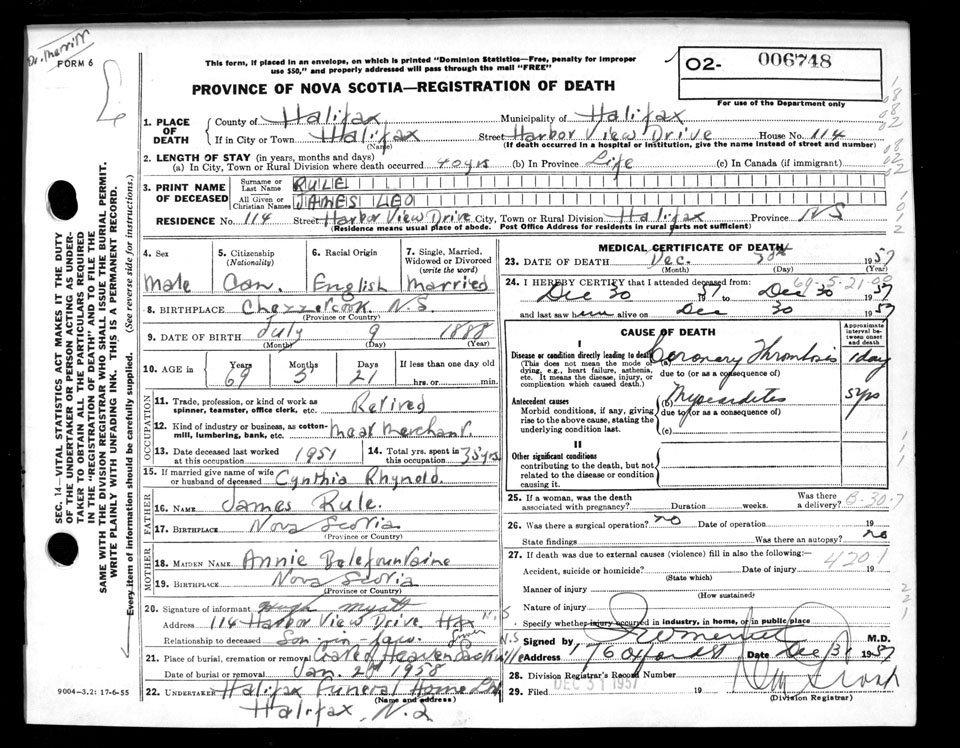 Dr. Merritt
FORM 6
This form, if placed in an envelope, on which is printed "Dominion Statistics—Free, penalty for improper
use $50," and properly addressed will pass through the mail "FREE"
PROVINCE OF NOVA SCOTIA—REGISTRATION OF DEATH
02- 006748
For use of the Department only
1. PLACE OF DEATH County of Halifax Municipality of Halifax
If in City or Town Halifax (Name) Street Harbor View Drive House No. 114
(If death occurred in a hospital or institution, give the name instead of street and number)
2. LENGTH OF STAY (in years, months and days)
(a) In City, Town or Rural Division where death occurred 40 yrs (b) In Province Life (c) In Canada (if immigrant)
3. PRINT NAME OF DECEASED Surname or Last Name RULE
All Given or Christian Names JAMES LEO
RESIDENCE No. 114 Street Harbor View Drive City, Town or Rural Division Halifax Province NS
(Residence means usual place of abode. Post Office Address for residents in rural parts not sufficient)
SEC. 14—VITAL STATISTICS ACT MAKES IT THE DUTY
OF THE UNDERTAKER OR PERSON ACTING AS UNDER-
TAKER TO OBTAIN ALL THE PARTICULARS REQUIRED
IN THE "REGISTRATION OF DEATH" AND TO FILE THE
SAME WITH THE DIVISION REGISTRAR WHO SHALL ISSUE THE BURIAL PERMIT.
WRITE PLAINLY WITH UNFADING INK. THIS IS A PERMANENT RECORD.
Every item of information should be carefully supplied. (See reverse side for instructions.)
4. Sex 5. Citizenship (Nationality) 6. Racial Origin 7. Single, Married, Widowed or Divorced (write the word)
Male Can. English Married
8. BIRTHPLACE Chezzetcook N.S
(Province or Country)
9. DATE OF BIRTH July 9 1888
(Month) (Day) (Year)
10. AGE in Years Months Days If less than one day
69 5 21 hrs. or min.
OCCUPATION
11. Trade, profession, or kind of work as
spinner, teamster, office clerk, etc. Retired
12. Kind of industry or business, as cotton-
mill, lumbering, bank, etc. Meat Merchant.
13. Date deceased last worked at this occupation 1951 14. Total yrs. spent in this occupation 35 yrs
15. If married give name of wife or husband of deceased Cynthia Rhynold.
FATHER
16. NAME James Rule.
17. BIRTHPLACE Nova Scotia
(Province or Country)
MOTHER
18. MAIDEN NAME Annie Balefountaine
19. BIRTHPLACE Nova Scotia
(Province or Country)
20. Signature of informant Hugh Myatt
Address 114 Harbor View Drive. Hfx N.S.
Relationship to deceased Son-in-law.
21. Place of burial, cremation or removal Gate of Heaven Lower Sackville N.S
Date of burial or removal Jan. 2nd 1958
22. UNDERTAKER Halifax Funeral Home Ltd
(Name and address)
Halifax, N.S
9004-3.2: 17-6-55
MEDICAL CERTIFICATE OF DEATH
23. DATE OF DEATH Dec. 30th 1957
(Month) (Day) (Year)
24. I HEREBY CERTIFY that I attended deceased from: 69-5-21-00
Dec 30 1957 to Dec 30 1957
and last saw him alive on Dec 30 1957
CAUSE OF DEATH
Approximate interval between onset and death
I
Disease or condition directly leading to death (a) Coronary Thrombosis 1 day
(This does not mean the mode of
dying, e.g., heart failure, asthenia,
etc. It means the disease, injury, or
complication which caused death.)
due to (or as a consequence of)
Antecedent causes (b) Myocarditis 5 yrs
Morbid conditions, if any, giving
rise to the above cause, stating the
underlying condition last.
due to (or as a consequence of)
(c)
II
Other significant conditions
contributing to the death, but not
related to the disease or condition
causing it.
25. If a woman, was the death associated with pregnancy? Duration weeks. Was there a delivery? B-30-7
26. Was there a surgical operation? no Date of operation 19
State findings Was there an autopsy? no
27. If death was due to external causes (violence) fill in also the following:— 4201
Accident, suicide or homicide? Date of injury 19
(State which)
Manner of injury
(How sustained)
Nature of injury
Specify whether injury occurred in industry, in home, or in public place
Signed by M.D.
Address 176 Oxford St Date Dec 31 1957
28. Division Registrar's Record Number
29. Filed DEC 31 1957 19
(Division Registrar)